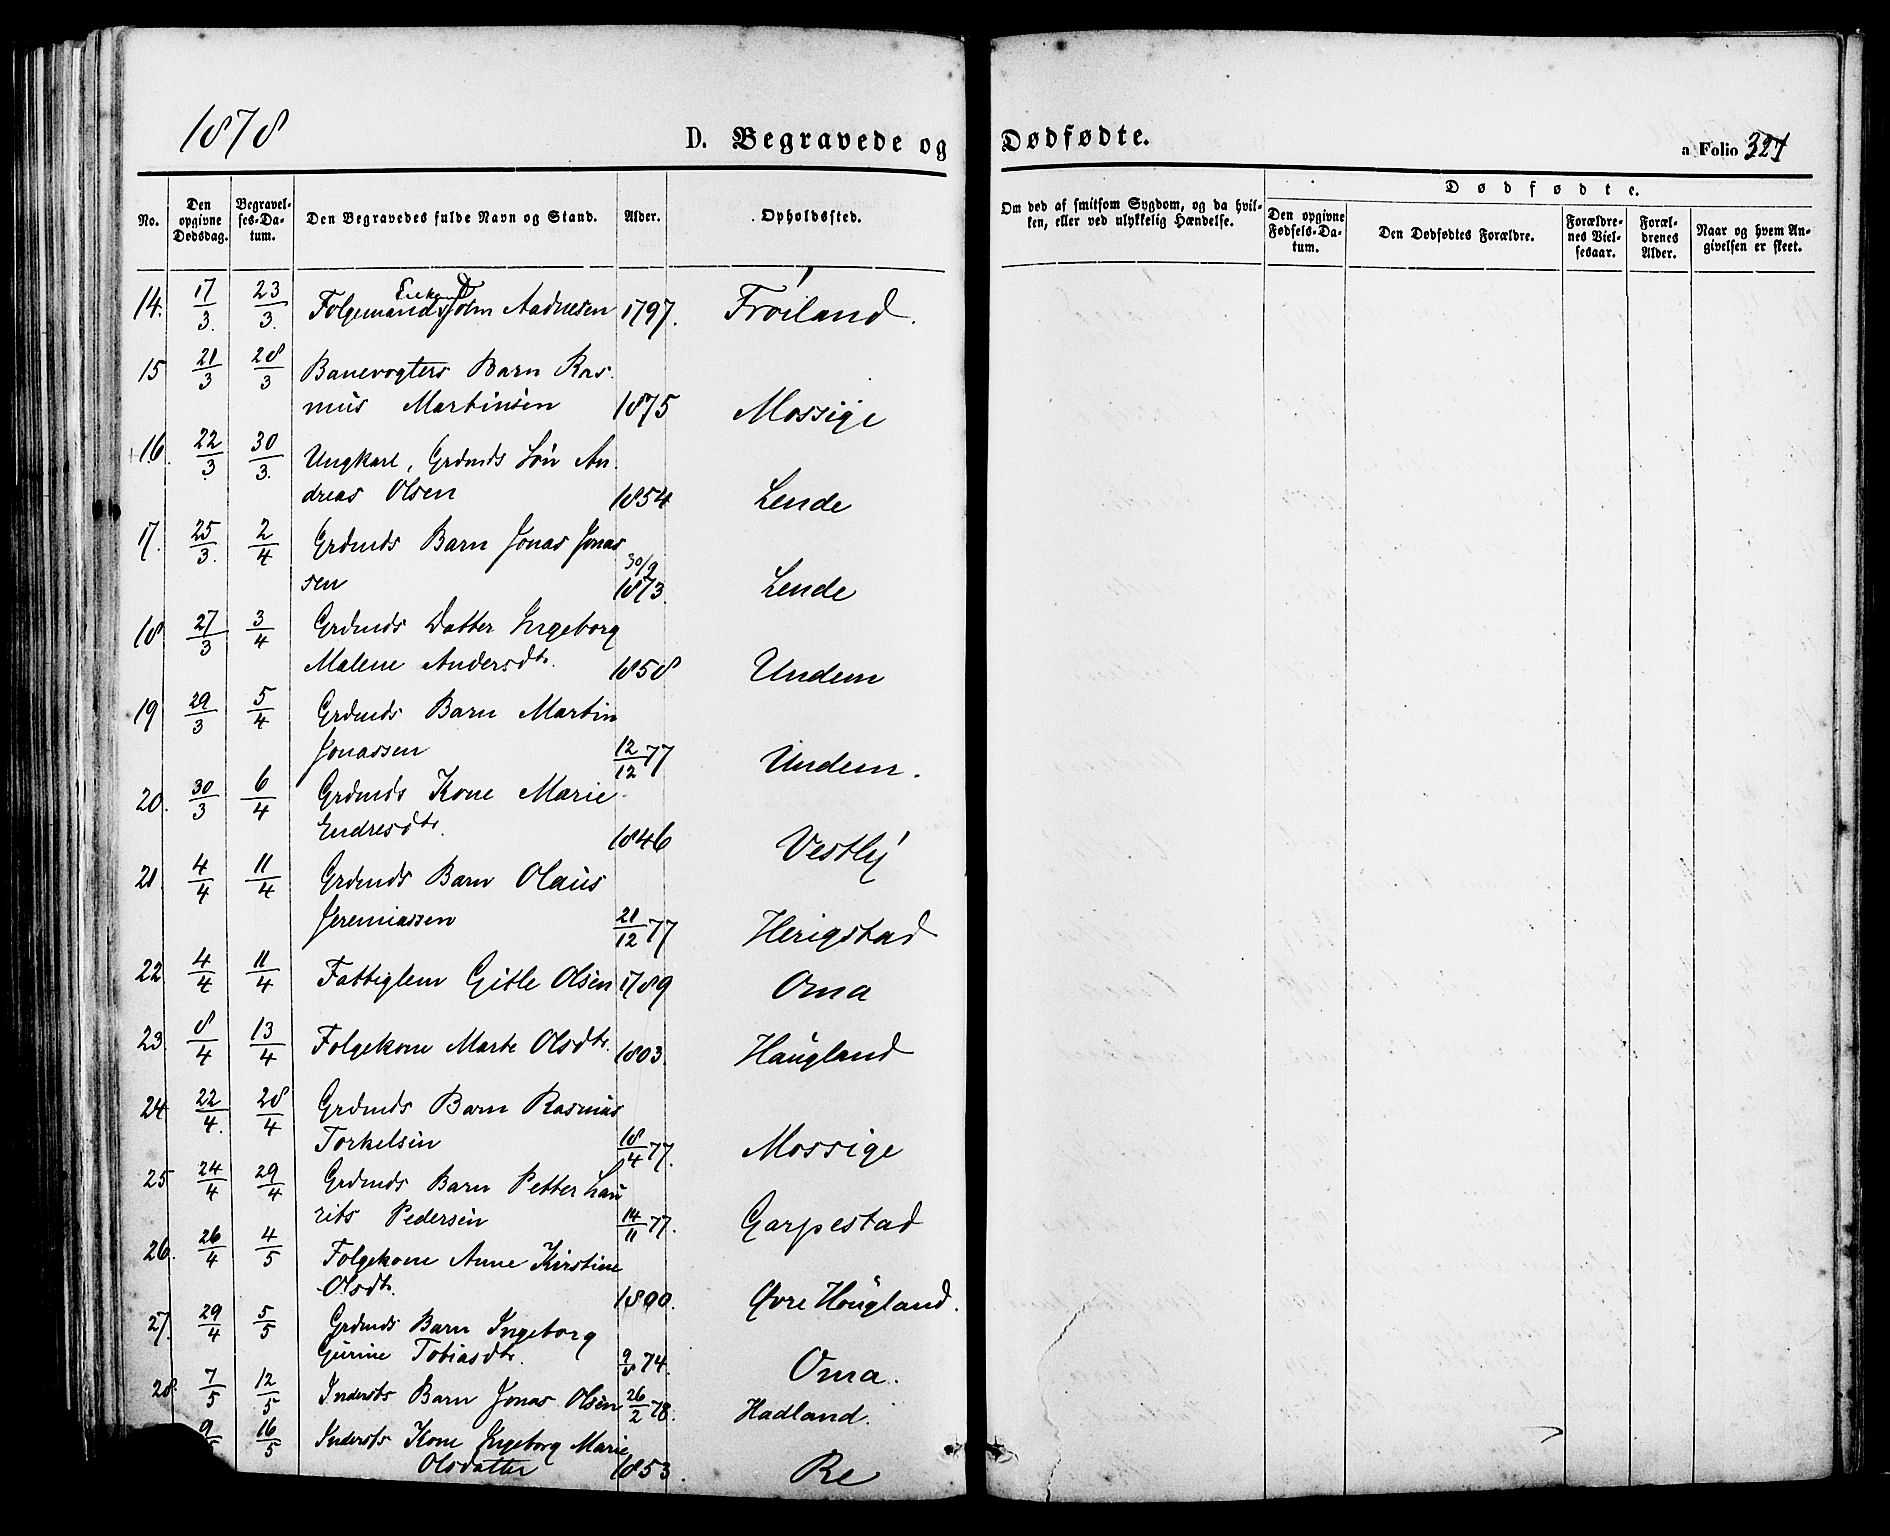 1878
D. Begravede og Dødfødte.
a Folio 321
No.
Den opgivne Dødsdag.
Begravelses-Datum.
Den Begravedes fulde Navn og Stand.
Alder.
Opholdssted.
Om død af smitsom Sygdom, og da hvilken, eller ved ulykkelig Hændelse.
Dødfødte.
Den opgivne Fødsels-Datum.
Den Dødfødtes Forældre.
Forældrenes Vielsesaar.
Forældrenes Alder.
Naar og hvem Angivelsen er skeet.
14. 17/3. 23/3. Folgemands John Aadnesen 1797. Frøiland.
15 21/3 28/3 Banevogters Barn Ras
mus Martinsen 1875 Mossige
16. 22/3. 30/3. Ungkarl, Grdmds Søn An
dreas Olsen 1854 Lende
17. 25/3. 2/4 Grdmds Barn Jonas Jonas
sen 30/9 1873. Lende
18 27/3 3/4 Grdmds Datter Ingeborg
Malene Andersdtr. 1858 Undem
19 29/3 5/4 Grdmds Barn Martin
Jonassen 12/12 77 Undem.
20. 30/3 6/4 Grdmds Kone Marie
Endresdtr. 1846 Vestly
21 4/4 11/4 Grdmds Barn Olaus
Jeremiassen 21/12 77 Herigstad
22 4/4 11/4 Fattiglem Gitle Olsen 1789 Oma
23 8/4 13/4 Folgekone Marte Olsdtr. 1803. Haugland
24 22/4. 28/4 Grdmds Barn Rasmus
Torkelsen 18/4 77. Mossige
25 24/4 29/4 Grdmds Barn Petter Lau
rits Pedersen 14/11 77. Garpestad
26. 26/4 4/5 Folgekone Anne Kirstine
Olsdtr. 1800. Øvre Høugland.
27. 29/4 5/5 Grdmds Barn Ingeborg
Gurine Tobiasdtr. 9/8 74. Oma.
28. 7/5 12/5 Indersts Barn Jonas Olsen 26/2 78. Hadland.
9/5 16/5 Indersts Kone Ingeborg Marie
Olsdatter 1853. Re